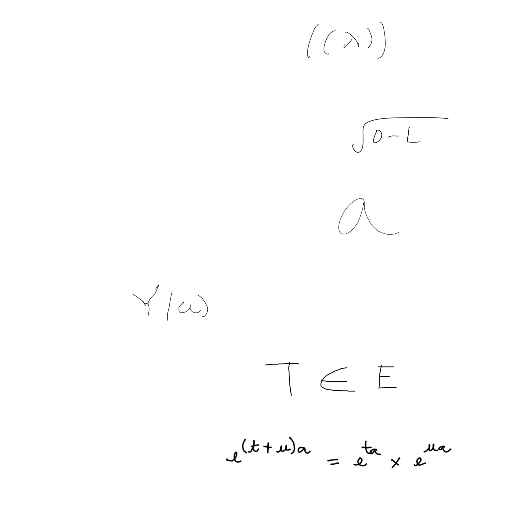 ((λ))
√(0-L)
a
Y(ω)
T ∈ E
e^{(t+u)a} = e^{ta} × e^{ua}